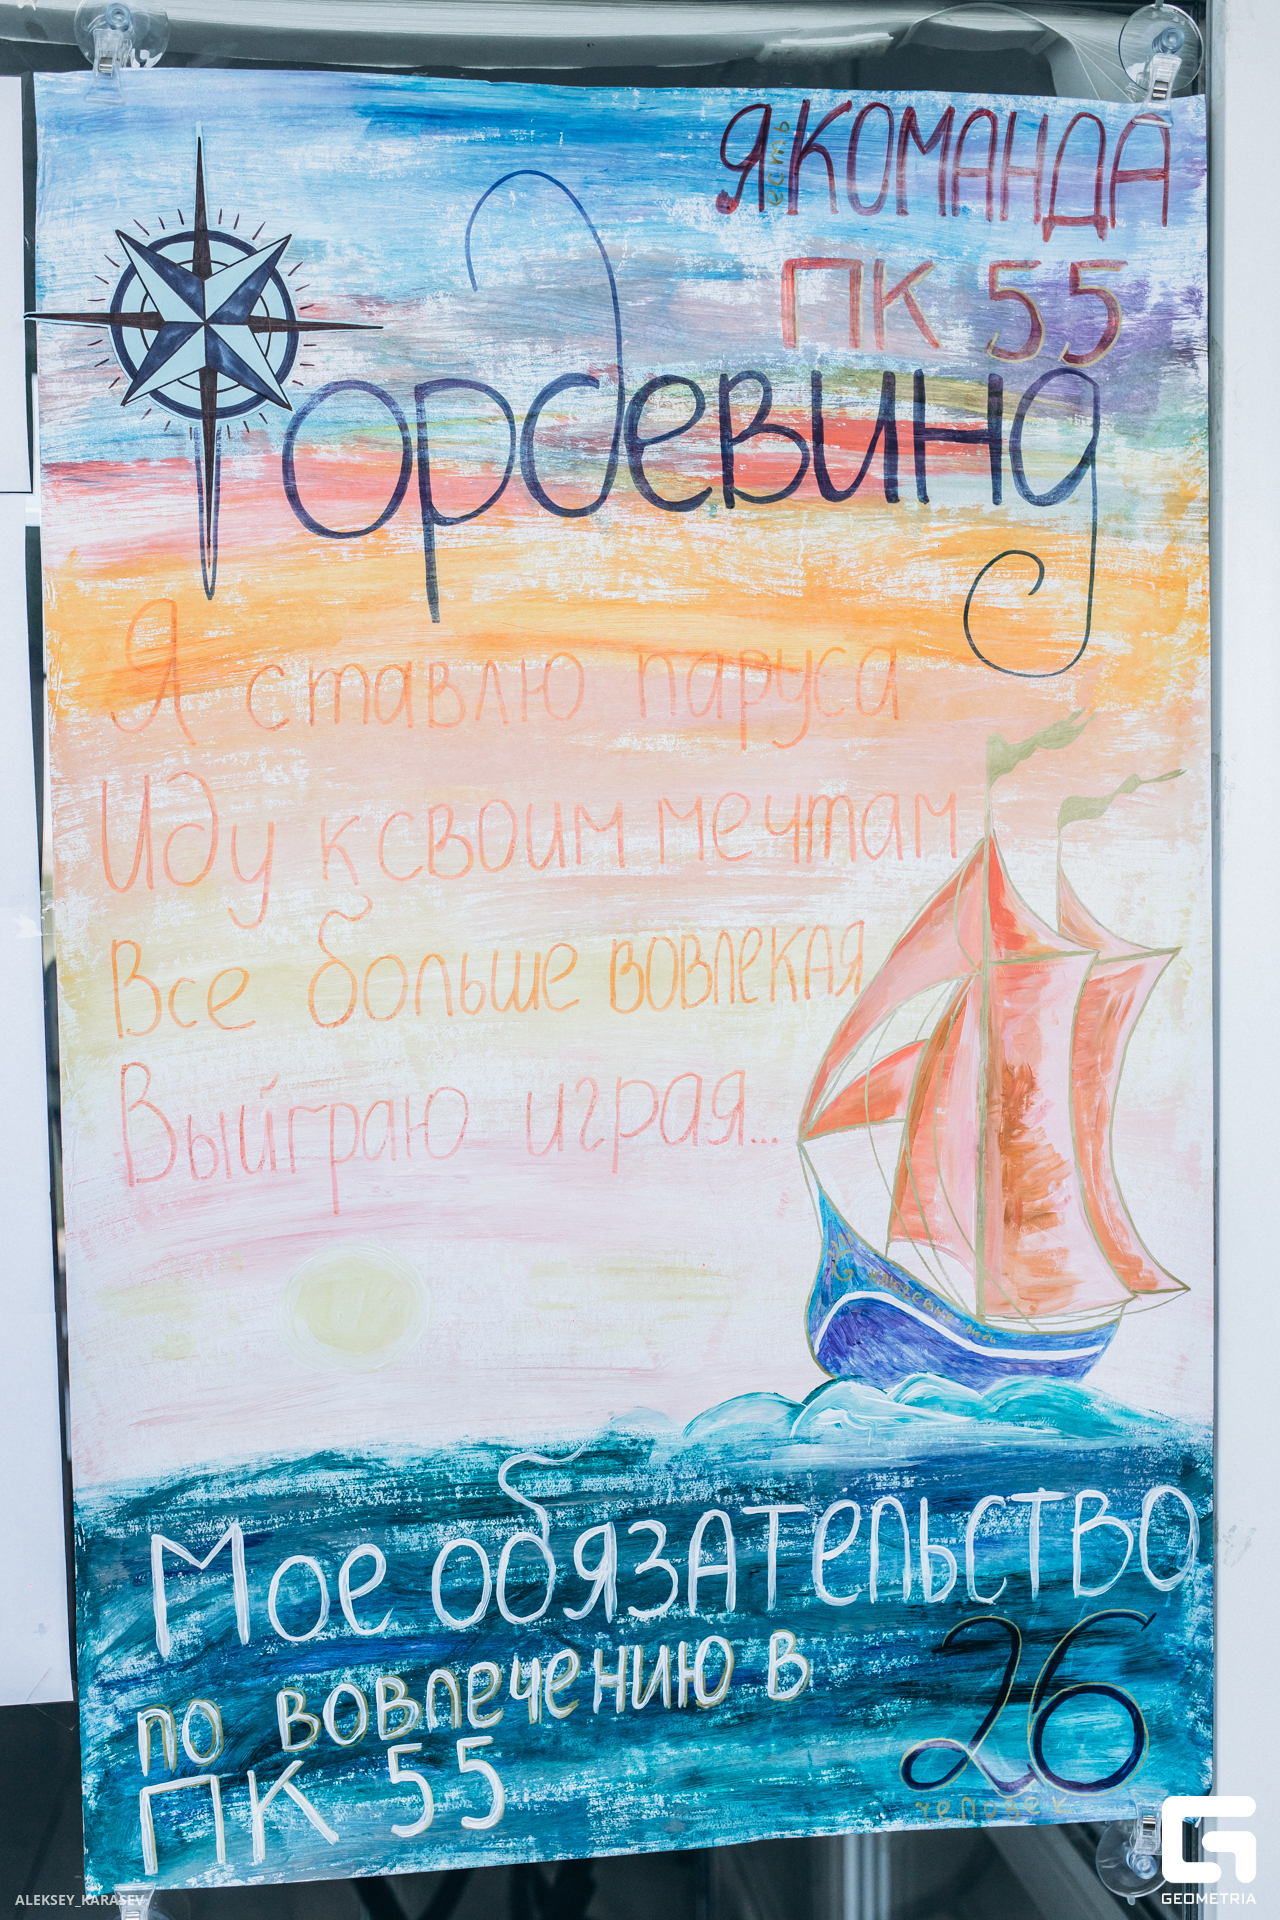 Я есть КОМАНДА
ПК 55
Гордевинд
Я ставлю паруса
Иду к своим мечтам
Все больше вовлекая
Выйграю играя...
Мое обязательство
по вовлечению в
ПК 55
26
человек
ALEKSEY_KARASEV
GEOMETRIA